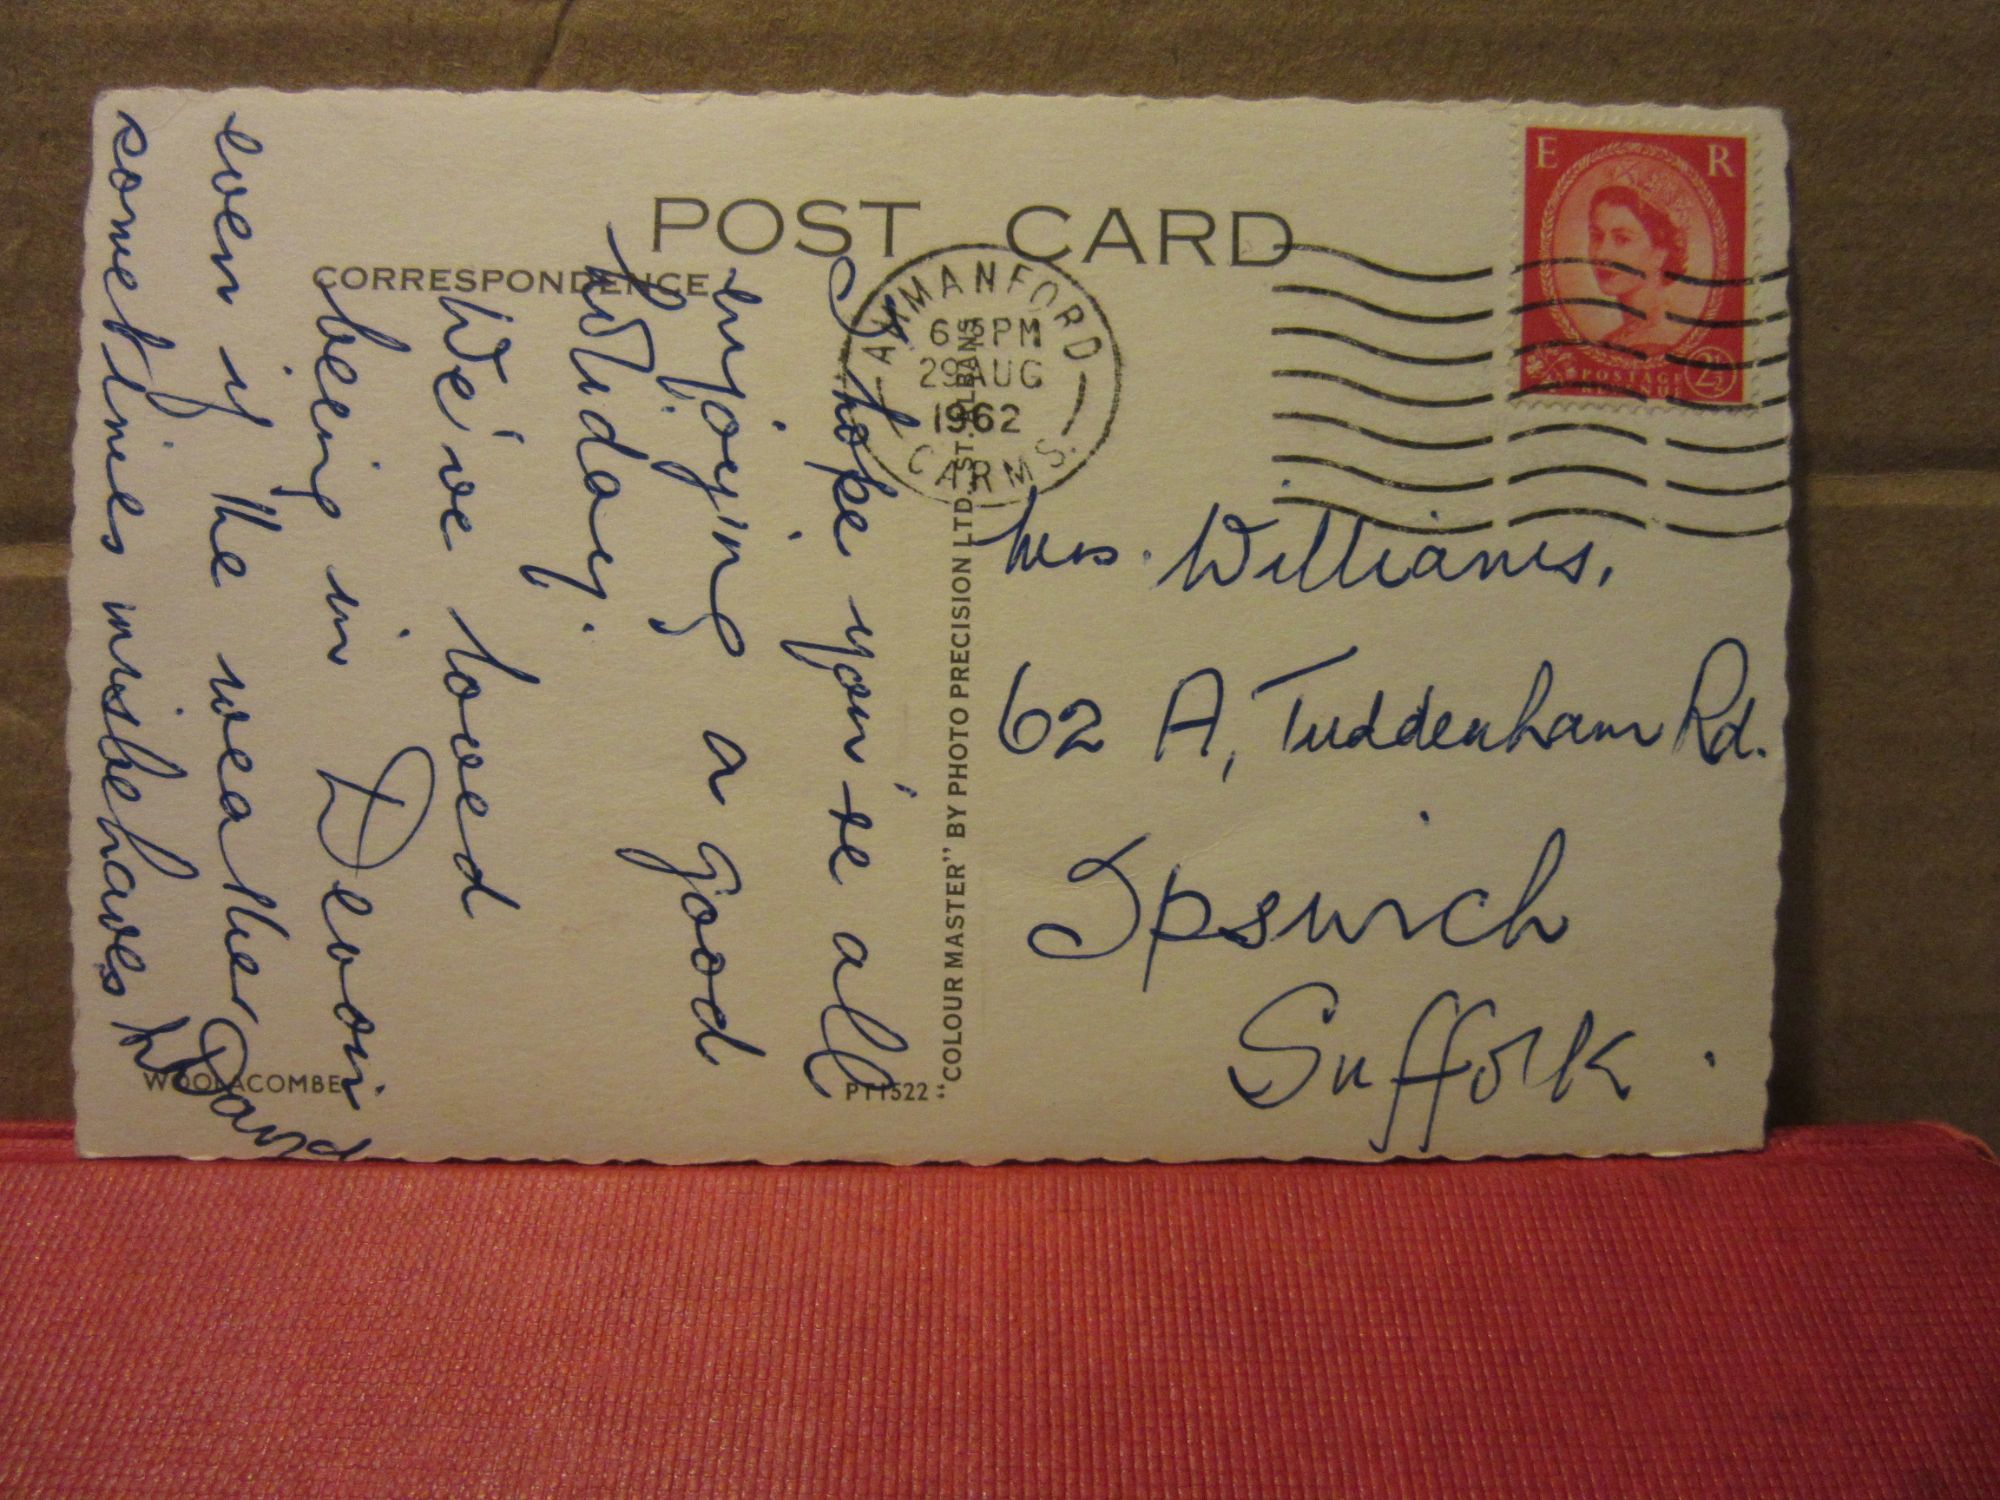 POST CARD
CORRESPONDENCE
I hope you're all
enjoying a good
holiday.
We've loved
being in Devon
even if the weather
sometimes misbehaves
David
Mrs. Williams,
62 A, Tuddenham Rd.
Ipswich
Suffolk.
AMMANFORD
PM
29 AUG
1962
CARMS.
E R
POSTAGE
REVENUE
2½
"COLOUR MASTER" BY PHOTO PRECISION LTD., ST. ALBANS
WOOLACOMBE
PT1522